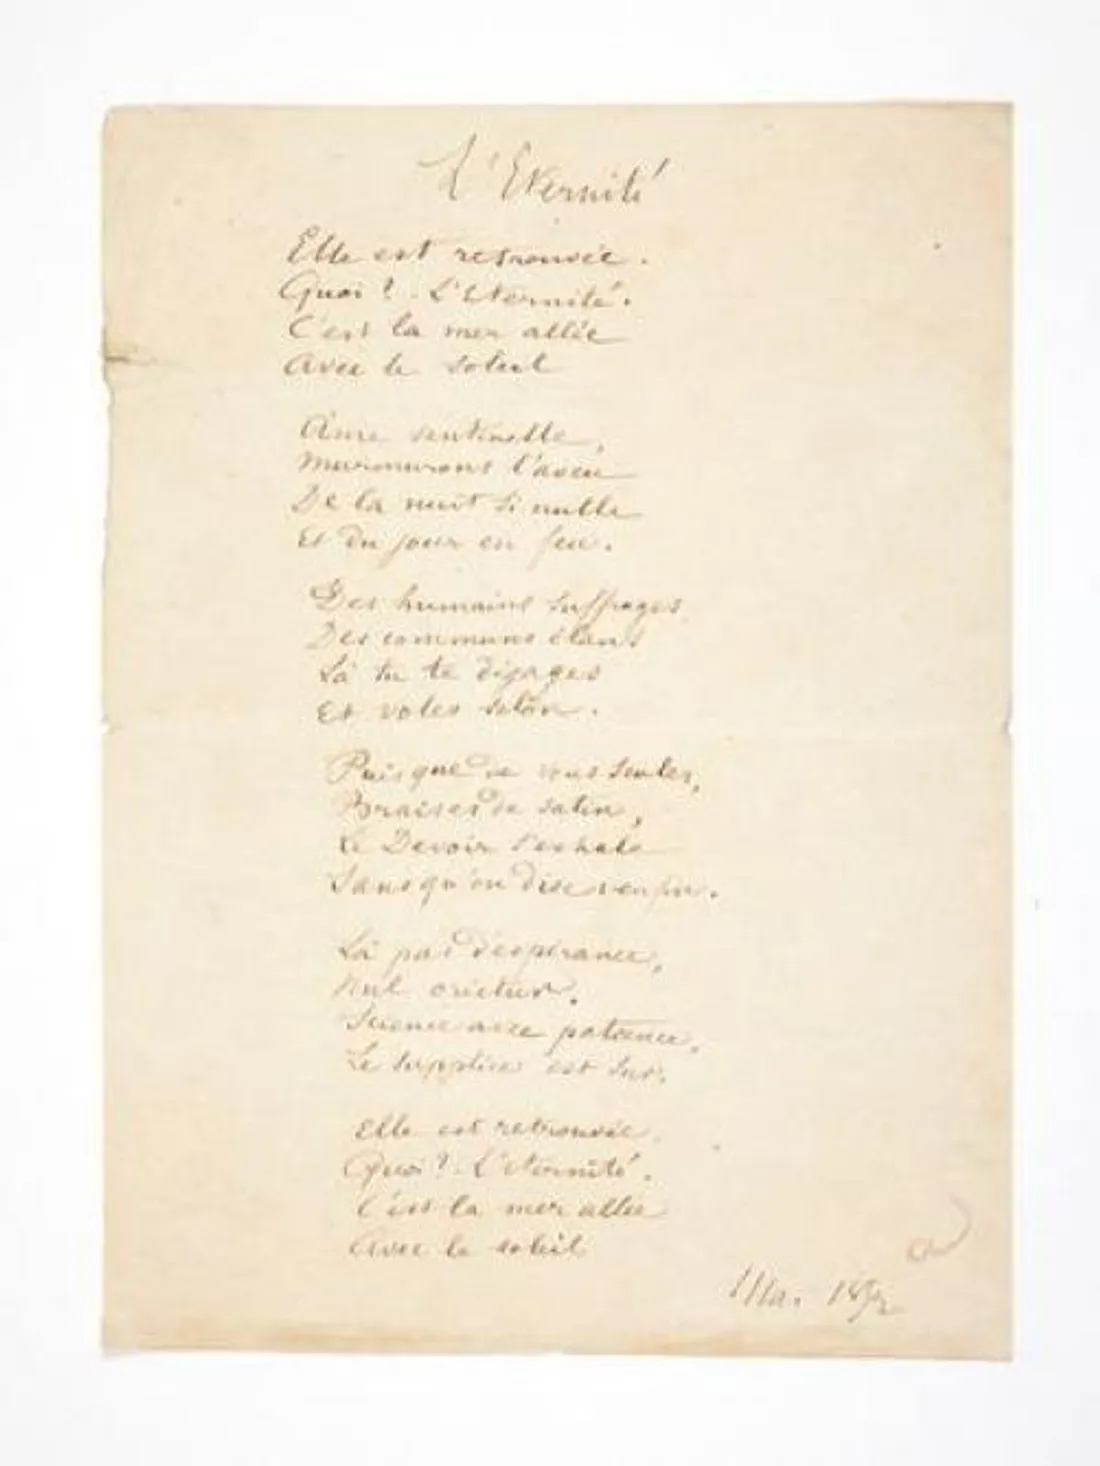 L'Eternité
Elle est retrouvée.
Quoi ? L'Eternité.
C'est la mer allée
Avec le soleil
Ame sentinelle,
Murmurons l'aveu
De la nuit si nulle
Et du jour en feu.
Des humains suffrages
Des communs élans
Là tu te dégages
Et voles selon.
Puisque de vous seules,
Braises de satin,
Le Devoir s'exhale
Sans qu'on dise enfin.
Là pas d'espérance,
Nul orietur.
Science avec patience,
Le supplice est sûr.
Elle est retrouvée.
Quoi ? L'éternité.
C'est la mer allée
Avec le soleil
Mai 1872